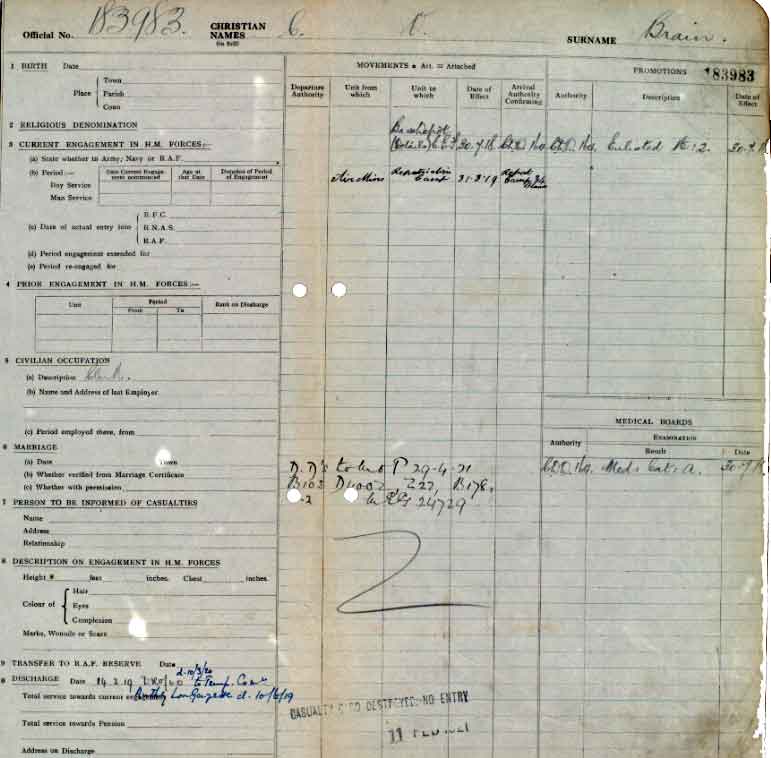 Official No. 183983. CHRISTIAN NAMES C. V. SURNAME Brain.
1 BIRTH Date
Place Town
Parish
Coun
2 RELIGIOUS DENOMINATION
3 CURRENT ENGAGEMENT IN H.M. FORCES:—
(a) State whether in Army, Navy or R.A.F.
(b) Period:— Date Current Engagement commenced Age at that Date Duration of Period of Engagement
Day Service
Man Service
(c) Date of actual entry into R.F.C.
R.N.A.S.
R.A.F.
(d) Period engagement extended for
(e) Period re-engaged for
4 PRIOR ENGAGEMENT IN H.M. FORCES:—
Unit Period Rank on Discharge
From To
5 CIVILIAN OCCUPATION
(a) Description Clerk.
(b) Name and Address of last Employer
(c) Period employed there, from
6 MARRIAGE
(a) Date Town
(b) Whether verified from Marriage Certificate
(c) Whether with permission
7 PERSON TO BE INFORMED OF CASUALTIES
Name
Address
Relationship
8 DESCRIPTION ON ENGAGEMENT IN H.M. FORCES
Height feet inches. Chest inches.
Colour of Hair
Eyes
Complexion
Marks, Wounds or Scars
9 TRANSFER TO R.A.F. RESERVE Date
d-10/3/20
DISCHARGE Date 14.2.19 to Temp. Com
Total service towards current d. 10/6/19
Total service towards Pension
Address on Discharge
MOVEMENTS Att. = Attached
Departure Authority Unit from which Unit to which Date of Effect Arrival Authority Confirming
30.7.18
Repatriation Camp 31.3.19
D.D's 29-4-21
B103 B178.
24729
2
CASUALTY DESTROYED. NO ENTRY
11 FEB 1921
PROMOTIONS 183983
Authority Description Date of Effect
Enlisted
MEDICAL BOARDS
Authority EXAMINATION
Result Date
Med. Cat. A.